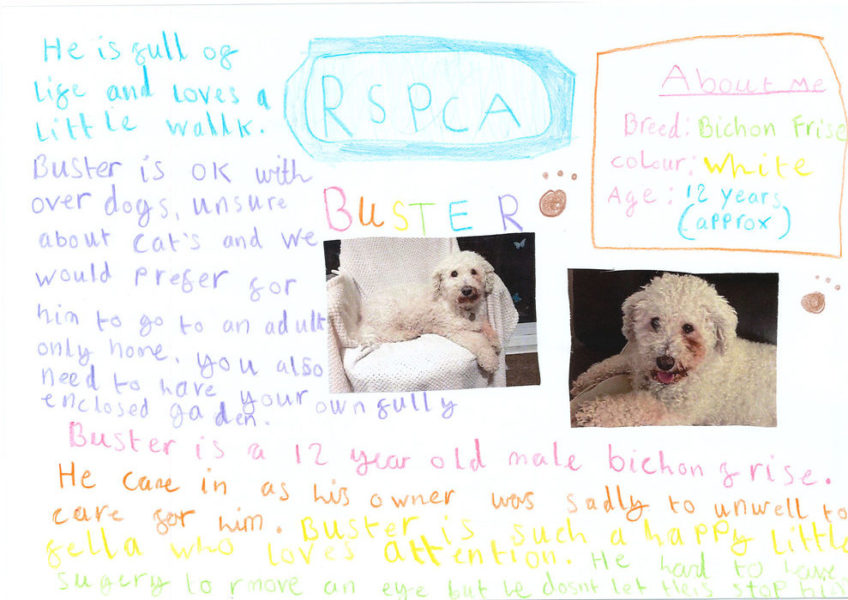 He is full of
life and loves a
little wallk.
RSPCA
About me
Breed: Bichon Frise
colour: White
Age: 12 years
(approx)
BUSTER
Buster is OK with
over dogs, unsure
about cat's and we
would prefer for
him to go to an adult
only home. you also
need to have your own fully
enclosed gaden.
Buster is a 12 year old male bichon frise.
He came in as his owner was sadly to unwell to
care for him. Buster is such a happy little
fella who loves attention. He had to have
sugery to rmove an eye but he dosnt let this stop him